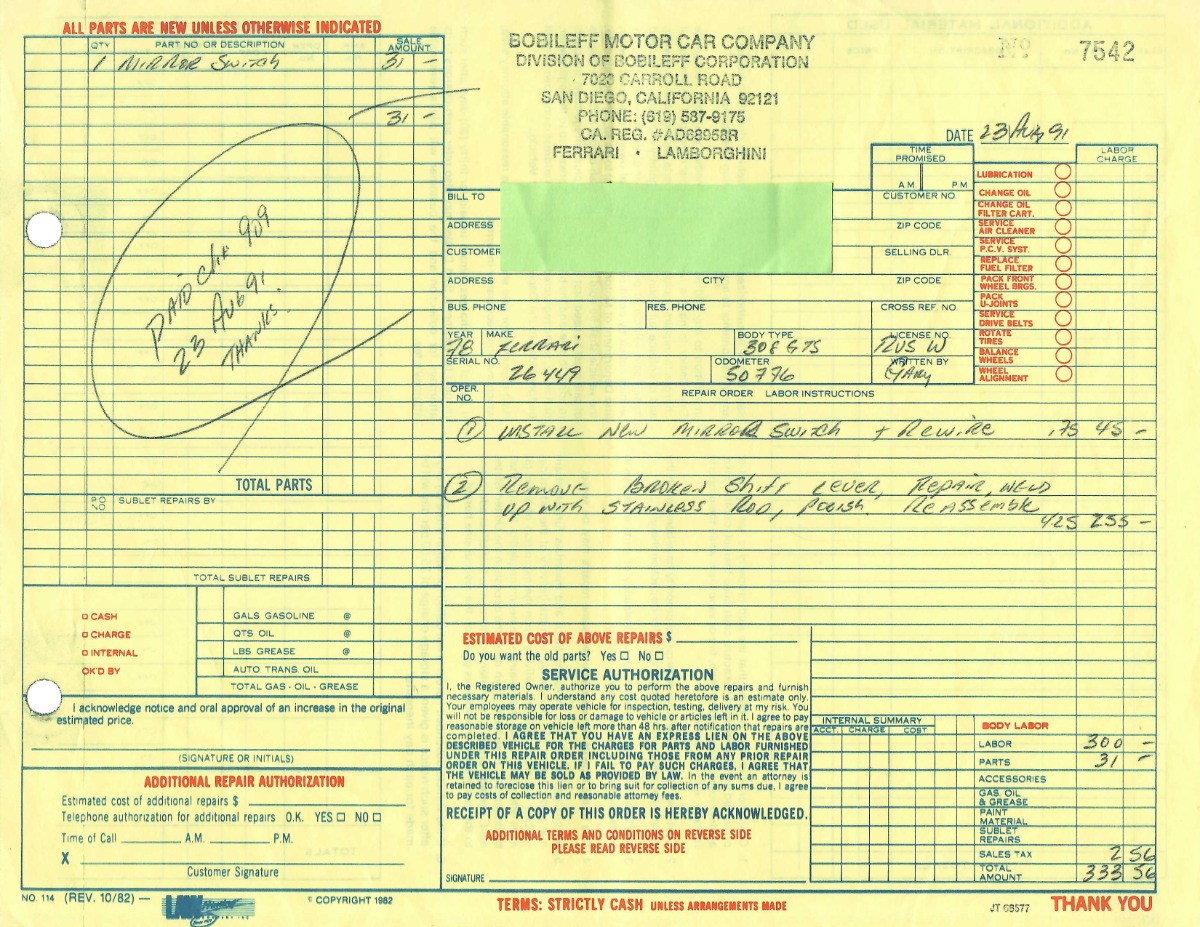 ALL PARTS ARE NEW UNLESS OTHERWISE INDICATED
QTY PART NO OR DESCRIPTION SALE AMOUNT
1 MIRROR SWITCH 31 -
31 -
PAID CHK 909
23 AUG 91
THANKS.
TOTAL PARTS
PO NO SUBLET REPAIRS BY
TOTAL SUBLET REPAIRS
CASH
CHARGE
INTERNAL
OK'D BY
GALS GASOLINE @
QTS OIL @
LBS GREASE @
AUTO TRANS. OIL
TOTAL GAS - OIL - GREASE
I acknowledge notice and oral approval of an increase in the original
estimated price.
(SIGNATURE OR INITIALS)
ADDITIONAL REPAIR AUTHORIZATION
Estimated cost of additional repairs $
Telephone authorization for additional repairs O.K. YES □ NO □
Time of Call A.M. P.M.
X
Customer Signature
NO. 114 (REV. 10/82) —
© COPYRIGHT 1982
BOBILEFF MOTOR CAR COMPANY
DIVISION OF BOBILEFF CORPORATION
7023 CARROLL ROAD
SAN DIEGO, CALIFORNIA 92121
PHONE: (619) 587-9175
CA. REG. #AD68958R
FERRARI • LAMBORGHINI
No 7542
DATE 23 Aug 91
TIME PROMISED
A.M. P M
LABOR CHARGE
BILL TO
CUSTOMER NO.
ADDRESS
ZIP CODE
CUSTOMER
SELLING DLR.
ADDRESS CITY ZIP CODE
BUS. PHONE RES. PHONE CROSS REF. NO.
YEAR MAKE BODY TYPE LICENSE NO.
78 FERRARI 308 GTS RUS W
SERIAL NO. ODOMETER WRITTEN BY
26449 50776 GARY
LUBRICATION
CHANGE OIL
CHANGE OIL FILTER CART.
SERVICE AIR CLEANER
SERVICE P.C.V. SYST.
REPLACE FUEL FILTER
PACK FRONT WHEEL BRGS.
PACK U-JOINTS
SERVICE DRIVE BELTS
ROTATE TIRES
BALANCE WHEELS
WHEEL ALIGNMENT
OPER. NO. REPAIR ORDER LABOR INSTRUCTIONS
1 INSTALL NEW MIRROR SWITCH + REWIRE .75 45 -
2 REMOVE BROKEN SHIFT LEVER, REPAIR, WELD
UP WITH STAINLESS ROD, POLISH. REASSEMBLE
425 255 -
ESTIMATED COST OF ABOVE REPAIRS $
Do you want the old parts? Yes □ No □
SERVICE AUTHORIZATION
I, the Registered Owner, authorize you to perform the above repairs and furnish
necessary materials. I understand any cost quoted heretofore is an estimate only.
Your employees may operate vehicle for inspection, testing, delivery at my risk. You
will not be responsible for loss or damage to vehicle or articles left in it. I agree to pay
reasonable storage on vehicle left more than 48 hrs. after notification that repairs are
completed. I AGREE THAT YOU HAVE AN EXPRESS LIEN ON THE ABOVE
DESCRIBED VEHICLE FOR THE CHARGES FOR PARTS AND LABOR FURNISHED
UNDER THIS REPAIR ORDER INCLUDING THOSE FROM ANY PRIOR REPAIR
ORDER ON THIS VEHICLE. IF I FAIL TO PAY SUCH CHARGES, I AGREE THAT
THE VEHICLE MAY BE SOLD AS PROVIDED BY LAW. In the event an attorney is
retained to foreclose this lien or to bring suit for collection of any sums due. I agree
to pay costs of collection and reasonable attorney fees.
RECEIPT OF A COPY OF THIS ORDER IS HEREBY ACKNOWLEDGED.
ADDITIONAL TERMS AND CONDITIONS ON REVERSE SIDE
PLEASE READ REVERSE SIDE
SIGNATURE
INTERNAL SUMMARY
ACCT. CHARGE COST
BODY LABOR
LABOR 300 -
PARTS 31 -
ACCESSORIES
GAS, OIL & GREASE
PAINT MATERIAL
SUBLET REPAIRS
SALES TAX 2 56
TOTAL AMOUNT 333 56
TERMS: STRICTLY CASH UNLESS ARRANGEMENTS MADE
JT 68577
THANK YOU